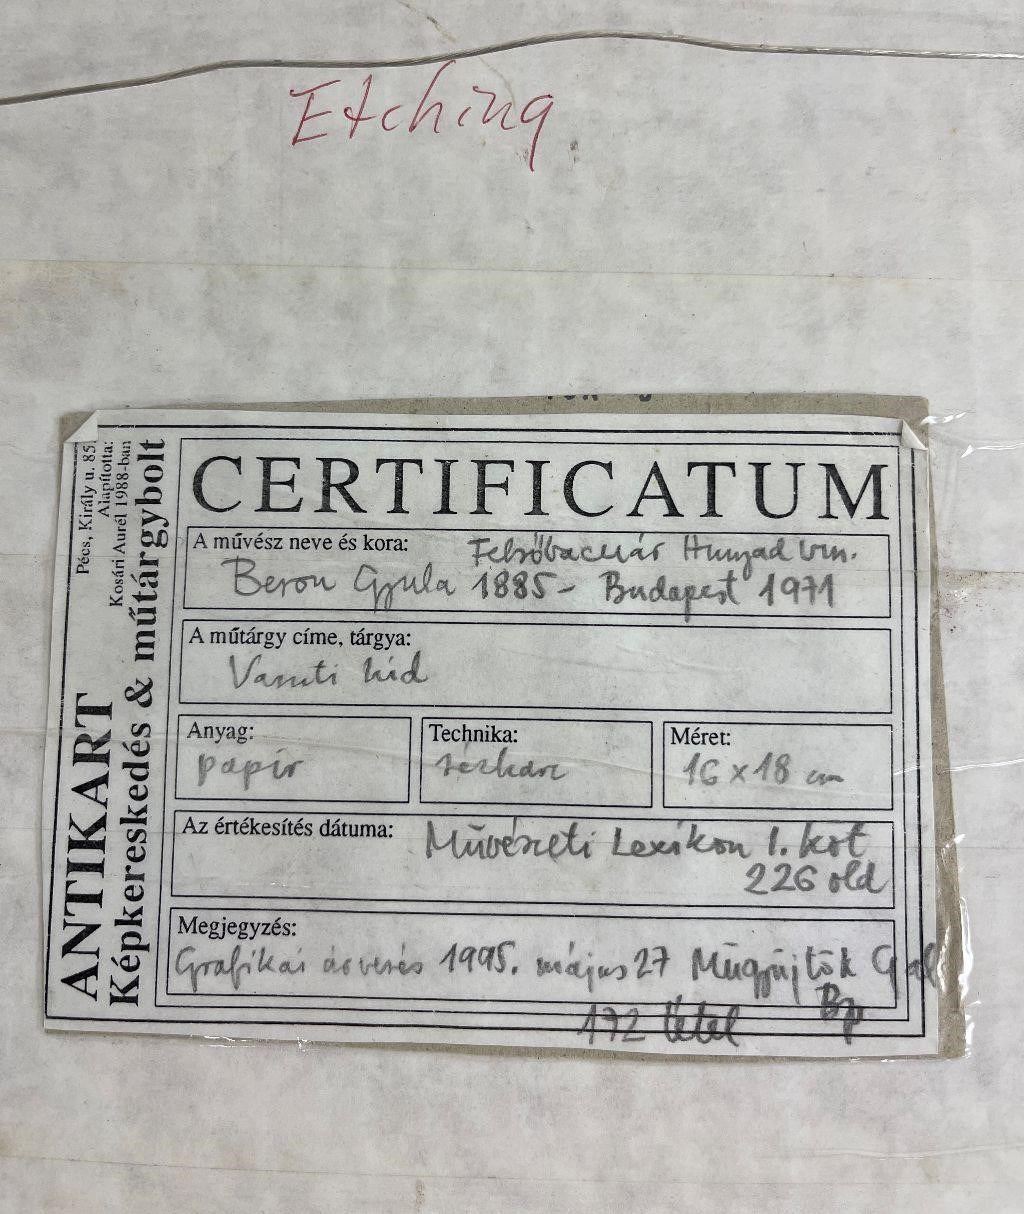 Etching
Pécs, Király u. 85.
Alapította:
Kosári Aurél 1988-ban
ANTIKART
Képkereskedés & műtárgybolt
CERTIFICATUM
A művész neve és kora: Hunyad vm.
Beron Gyula 1885 - Budapest 1971
A műtárgy címe, tárgya:
Vasuti híd
Anyag:
papír
Technika:
rézkarc
Méret:
16 x 18 cm
Az értékesítés dátuma: Művészeti Lexikon 1. kot
226 old
Megjegyzés:
Grafikai árverés 1995. május 27 Műgyüjtök Gal
Bp
172 tétel